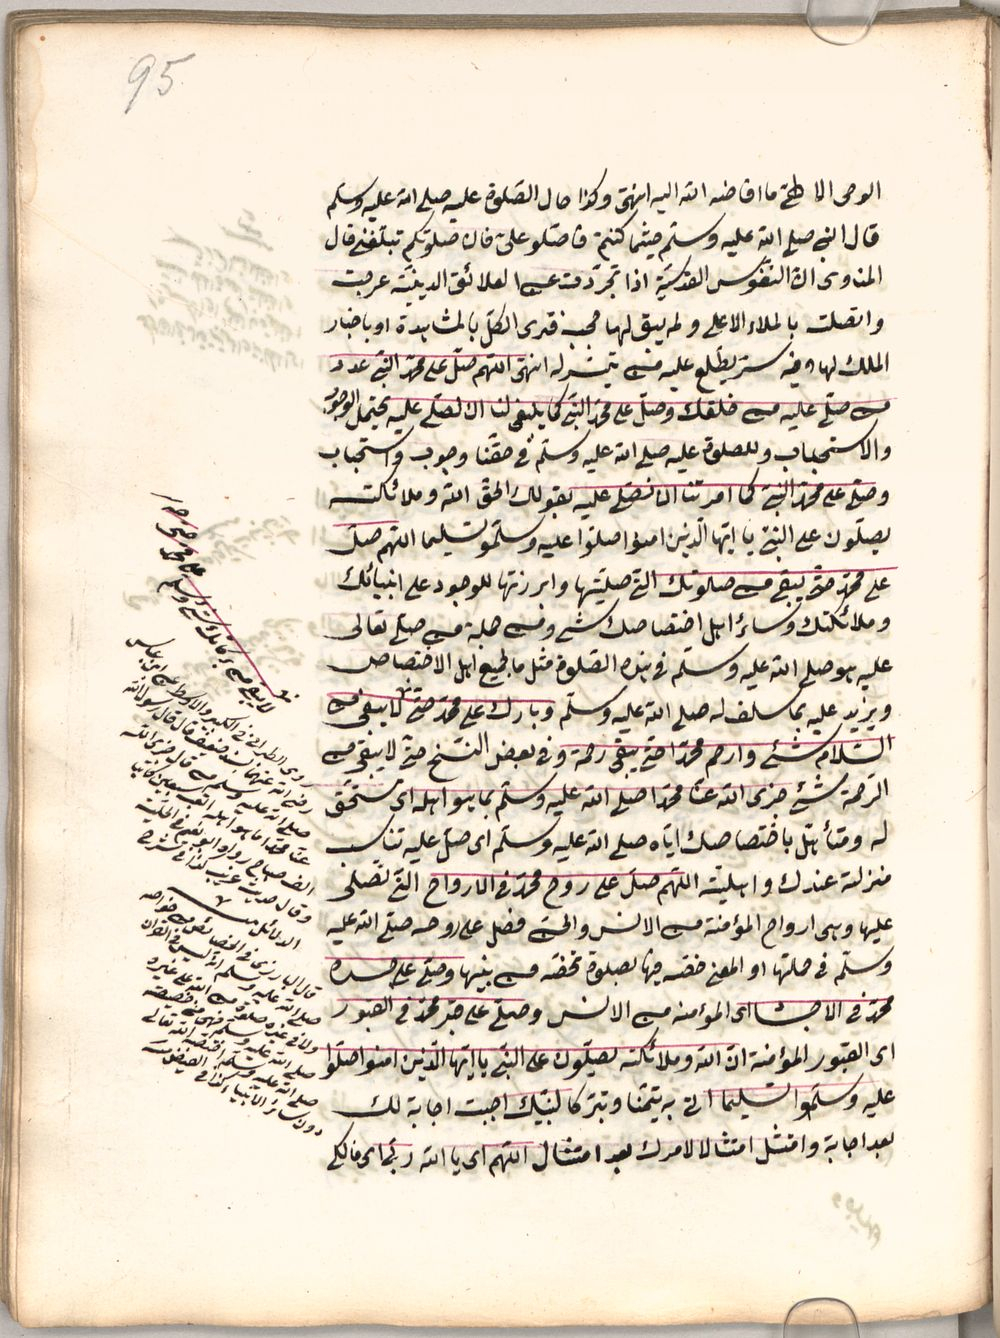 95
الوحي الا طح ما افاضه الله اليه انتهى وكذا حال الصلوة عليه صلى الله عليه وسلم
قال النبي صلى الله عليه وسلم حيثما كنتم فصلوا على فان صلوتكم تبلغني قال
المناوي ان النفوس القدسية اذا تجردت عن العلائق الدينية عرجت
واتصلت بالملاء الاعلى ولم يبق لها حجب فترى الكل بالمشاهدة او باخبار
الملك لها وفيه سر يطلع عليه من تيسر له انتهى اللهم صل على محمد النبي عدد
من صلى عليه من خلقك وصل على محمد النبي كما ينبغي لنا ان نصلى عليه يحتمل الوجوب
والاستحباب وللصلوة عليه صلى الله عليه وسلم في حقنا وجوب واستحباب
وصل على محمد النبي كما امرتنا ان نصلى عليه بقولك الحق ان الله وملائكته
يصلون على النبي يا ايها الذين امنوا صلوا عليه وسلموا تسليما اللهم صل
على محمد حتى يبقى من صلوتك التي صليتها وابرزتها للوجود على انبيائك
وملائكتك وسائر اهل اختصاصك شئ ومن جملة من صلى تعالى
عليه هو صلى الله عليه وسلم في هذه الصلوة مثل ما لجميع اهل الاختصاص
ويزيد عليه بما سلف له صلى الله عليه وسلم وبارك على محمد حتى لا يبقى من
السلام شئ وارحم محمدا حتى يبقى رحمة وفي بعض النسخ حتى لا يبقى من
الرحمة شئ جزى الله عنا محمدا صلى الله عليه وسلم بما هو اهله اى مستحق
له ومتأهل باختصاصك اياه صلى الله عليه وسلم اى صل عليه تناسب
منزلته عندك واهليته اللهم صل على روح محمد في الارواح التي تصلى
عليها وهي ارواح المؤمنة من الانس والجن فصل على روحه صلى الله عليه
وسلم في جملتها او المعنى خصه فيها بصلوة تخصه من بينها وصل على جسده
محمد في الاجساد اى المؤمنة من الانس وصل على قبر محمد في القبور
اى القبور المؤمنة ان الله وملائكته يصلون على النبي يا ايها الذين امنوا صلوا
عليه وسلموا تسليما اتى به تيمنا وتبركا لبيك اجبت اجابة لك
بعد اجابة وامتثل امتثالا لامرك بعد امتثال اللهم اى يا الله ربى اى مالكى
روى الطبراني في الكبير والاوسط عن ابن عباس
رضى الله عنهما بسند ضعيف قال قال رسول الله
صلى الله عليه وسلم من قال جزى الله
عنا محمدا ما هو اهله اتعب سبعين كاتبا
الف صباح رواه ابو نعيم في الحلية
وقال حديث غريب كذا في شرح
الدلائل
صلى الله عليه وسلم انه ليس في القران
ولا في غيره صلوة من الله على غيره
صلى الله عليه وسلم فهي خصيصة
صلى الله عليه وسلم اختصه الله تعالى
دون سائر الانبيا كذا في